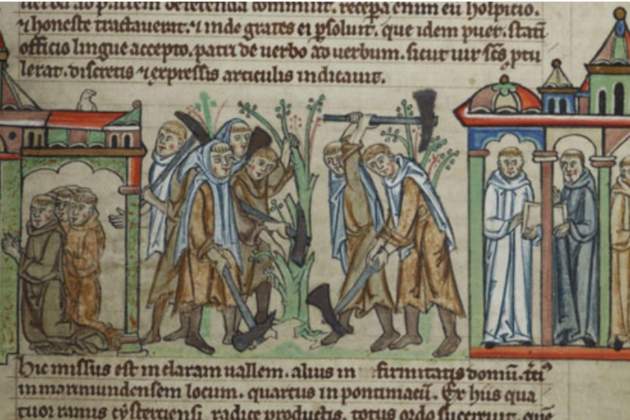 ad patrem deferenda commisit. enim eu hospitio.
⁊ honeste tractauerit. ⁊ inde grates ei psoluit. que idem puer. statī
officio lingue accepto. patri de uerbo ad uerbum. sicut uir scs ptu
lerat. discretis ⁊ expressis articulis indicauit.
Hic missus est in claram uallem. alius in firmitatis domū.
in marimundensem locum. quartus in pontiniacū. Ex hiis qua
tuor ramis cysterciensi radice productis. totus ordo succreuit.